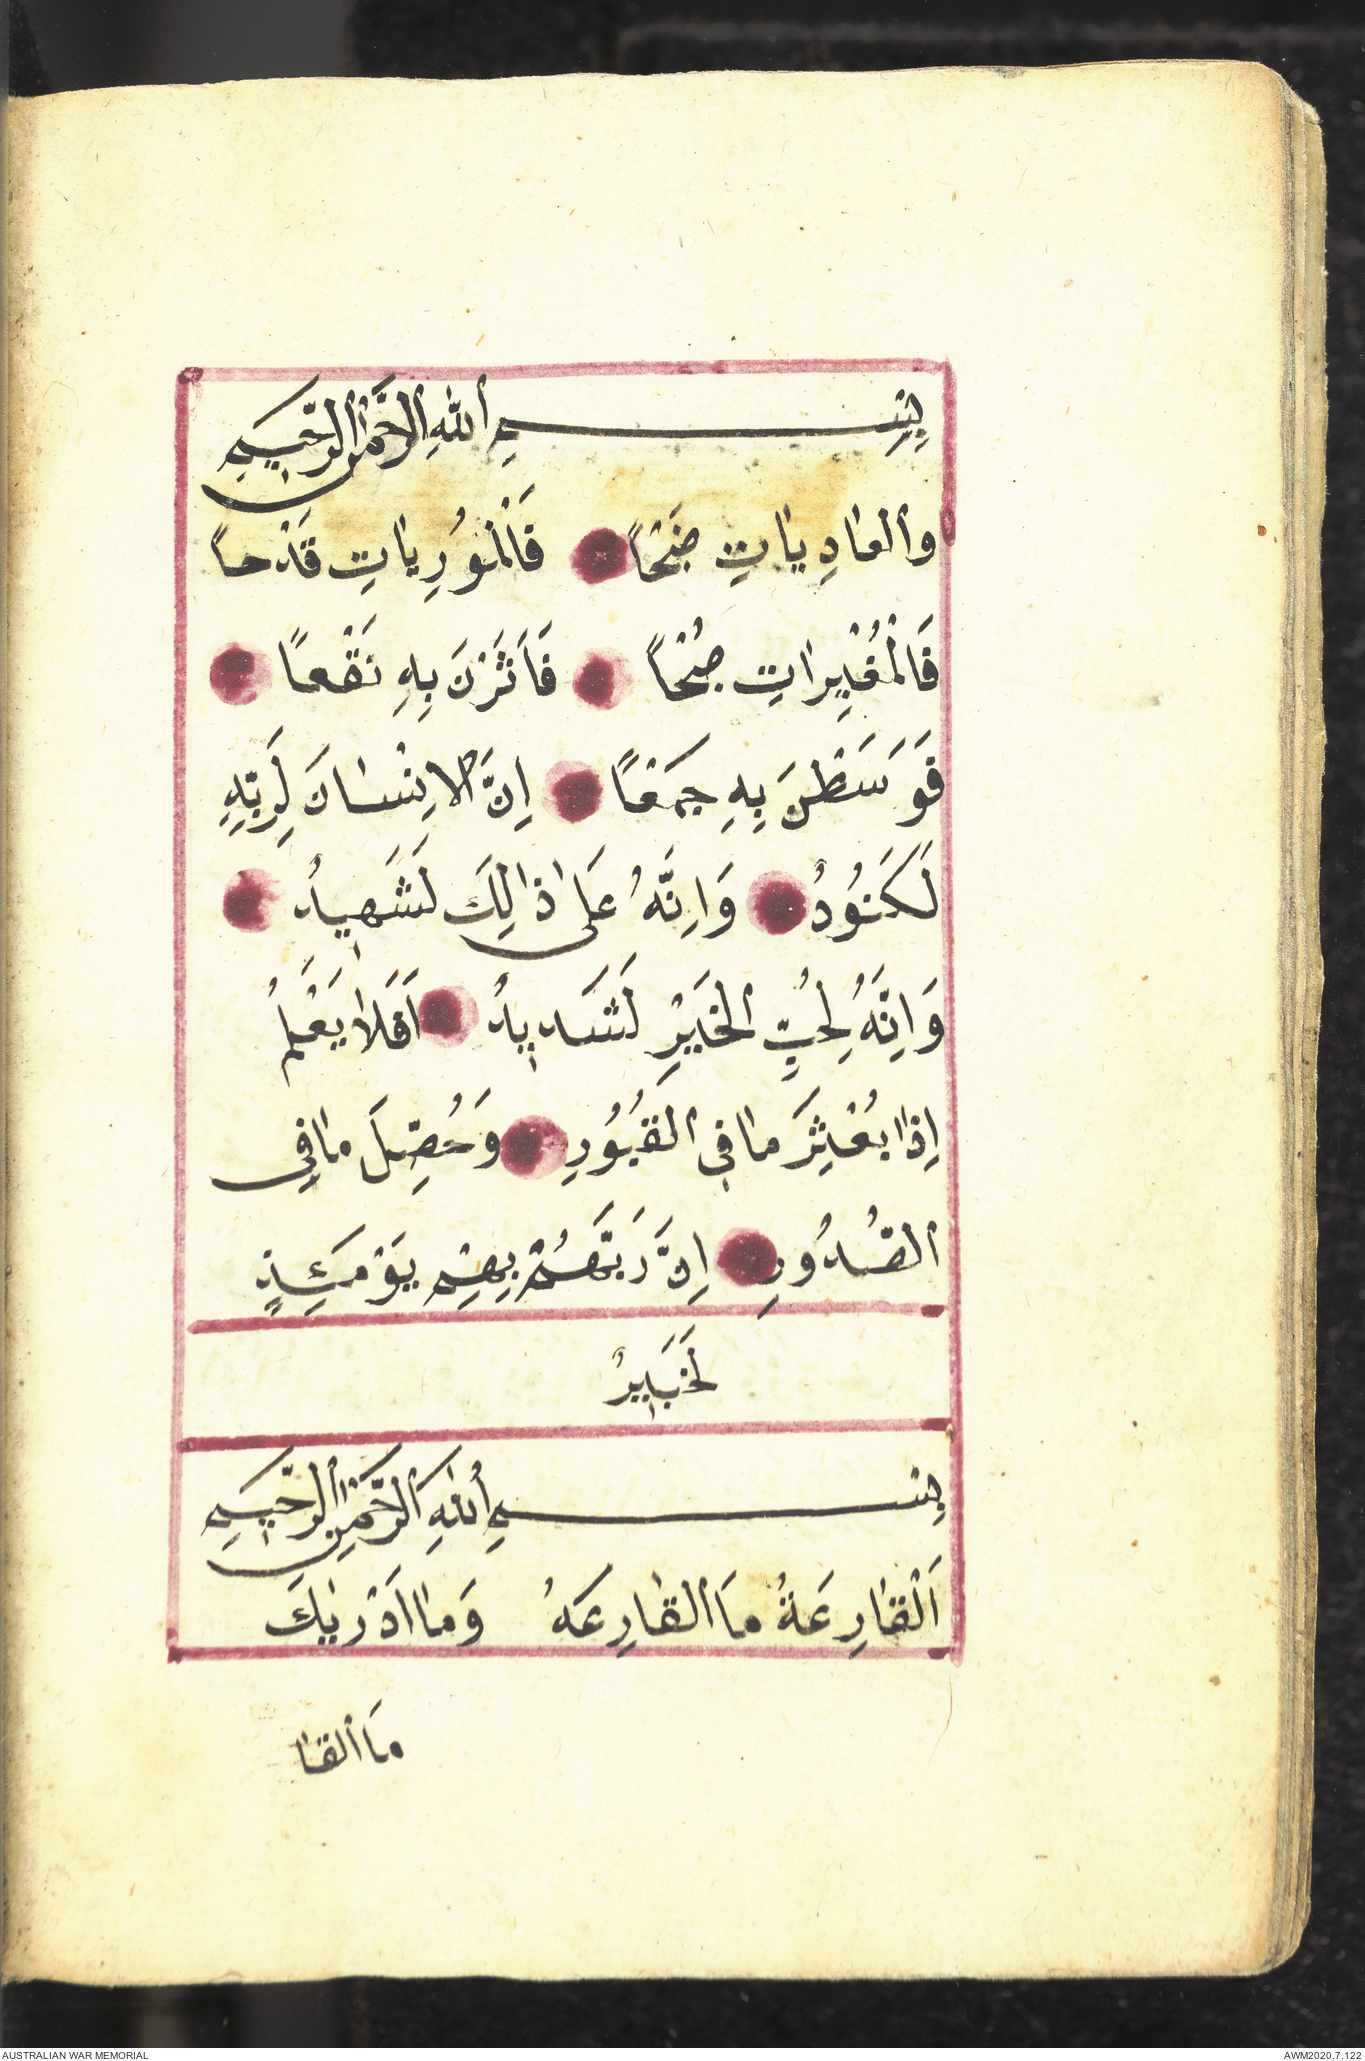 بِسْمِ اللّٰهِ الرَّحْمٰنِ الرَّحٖيمِ
وٱلعٰادِيٰاتِ ضَبْحًا فَٱلْمُورِيٰاتِ قَدْحاً
فَالْمُغٖيرٰاتِ صُبْحًا فَاَثَرْنَ بِهِ نَقْعًا
فَوَسَطْنَ بِهِ جَمْعًا اِنَّ الاِنْسٰانَ لِرَبِّهِ
لَكَنُودٌ وَاِنَّهُ عَلىٰ ذٰالِكَ لَشَهٖيدٌ
وَاِنَّهُ لِحُبِّ الخَيْرِ لَشَدٖيدٌ اَفَلاٰ يَعْلَمُ
اِذٰا بُعْثِرَ مٰا فٖي القُبُورِ وَحُصِّلَ مٰا فِي
الصُّدُورِ اِنَّ رَبَّهُمْ بِهِمْ يَوْمَئِذٍ
لَخَبٖيرٌ
بِسْمِ اللّٰهِ الرَّحْمٰنِ الرَّحٖيمِ
اَلْقٰارِعَةُ مَا ٱلقٰارِعَهُ وَمٰا اَدْرٰيكَ
مَا ٱلقٰا
AUSTRALIAN WAR MEMORIAL
AWM2020.7.122